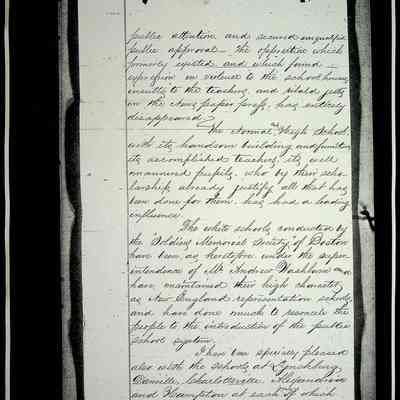 public attention and secured unqualified
public approval — the opposition which
formerly existed and which found
expression in violence to the school houses,
insults to the teachers, and ribald jests
in the News paper press, has entirely
disappeared.
The Normal and High School,
with its handsome building and furniture
its accomplished teachers, its well
mannered pupils, who by their scho-
larship already justify all that has
been done for them has had a leading
influence
The white schools conducted by
the Soldiers Memorial Society of Boston
have been as heretofore under the super
intendence of Mr Andrew Washburn and
have maintained their high character
as New England representation schools
and have done much to reconcile the
people to the introduction of the public
school system.
I have been specially pleased
also with the schools at Lynchburg
Danville, Charlottesville, Alexandria
and Hampton at each of which